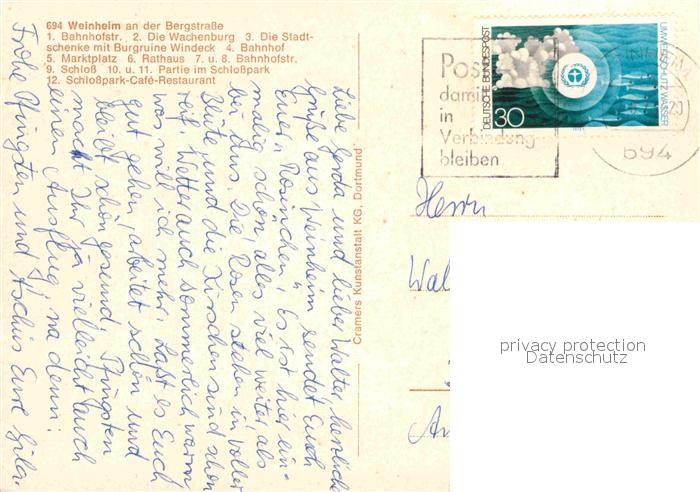 694 Weinheim an der Bergstraße
1. Bahnhofstr. 2. Die Wachenburg 3. Die Stadt-
schenke mit Burgruine Windeck 4. Bahnhof
5. Marktplatz 6. Rathaus 7. u. 8. Bahnhofstr.
9. Schloß 10. u. 11. Partie im Schloßpark
12. Schloßpark-Café-Restaurant
Liebe Gerda und lieber Walter, herzliche
Grüße aus Weinheim sendet Euch
Euer „Rosinchen". Es ist hier ein-
malig schön, alles viel weiter als
bei Uns. Die Rosen stehen in voller
Blüte und die Kirschen sind schon
reif. Wetter auch sommerlich warm
was will ich mehr. Laßt es Euch
gut gehen, arbeitet schön und
bleibt schön gesund. Pfingsten
macht Ihr ja vielleicht auch
einen Ausflug, na denn!
Frohe Pfingsten und Tschüs Eure Gila.
Cramers Kunstanstalt KG, Dortmund
Post
damit
in
Verbindung
bleiben
DEUTSCHE BUNDESPOST
30
UMWELTSCHUTZ WASSER
694
Herrn
Wal
privacy protection
Datenschutz